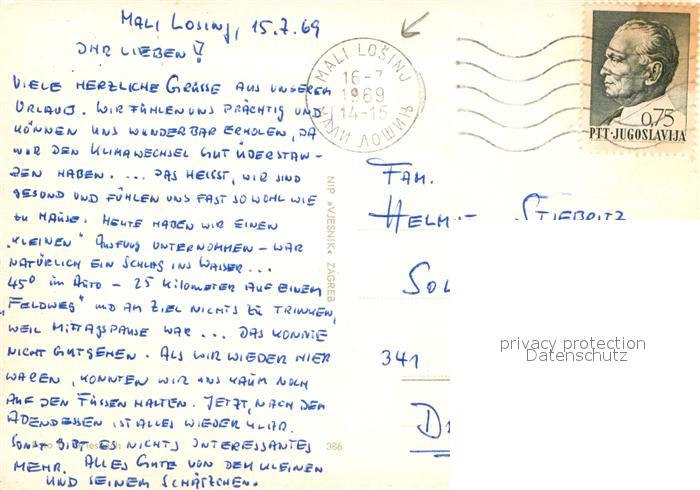 MALI LOSINJ, 15.7.69
IHR LIEBEN!
VIELE HERZLICHE GRÜSSE AUS UNSEREM
URLAUB. WIR FÜHLEN UNS PRÄCHTIG UND
KÖNNEN UNS WUNDERBAR ERHOLEN, DA
WIR DEN KLIMAWECHSEL GUT ÜBERSTAN-
DEN HABEN. ... DAS HEISST, WIR SIND
GESUND UND FÜHLEN UNS FAST SO WOHL WIE
ZU HAUSE. HEUTE HABEN WIR EINEN
„KLEINEN" AUSFLUG UNTERNOMMEN - WAR
NATÜRLICH EIN SCHLAG INS WASSER...
45° IM AUTO - 25 KILOMETER AUF EINEM
„FELDWEG" UND AM ZIEL NICHTS ZU TRINKEN,
WEIL MITTAGSPAUSE WAR... DAS KONNTE
NICHT GUTGEHEN. ALS WIR WIEDER HIER
WAREN, KONNTEN WIR UNS KAUM NOCH
AUF DEN FÜSSEN HALTEN. JETZT, NACH DEM
ABENDESSEN IST ALLES WIEDER KLAR.
SONST GIBT ES NICHTS INTERESSANTES
MEHR. ALLES GUTE VON DEM KLEINEN
UND SEINEM SCHÄTZCHEN.
MALI LOŠINJ
16-7
1969
14-15
МАЛИ ЛОШИЊ
0,75
PTT-JUGOSLAVIJA
NIP »VJESNIK« ZAGREB
386
FAM.
STIEBRITZ
341
privacy protection
Datenschutz